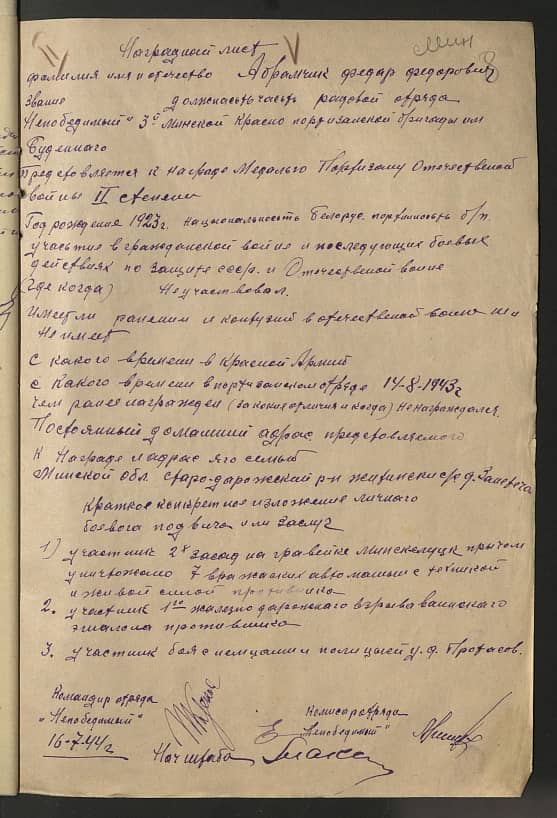 Мин
Наградной лист
фамилия имя и отечество Абрамчик федар федорович
звание должность часть рядовой отряда
Непобедимый" 3й Минской Красно партизанской бригады им
Буденного
Представляется к награде Медалью Партизану Отечественной
войны II степени
Год рождения 1923г. национальность Белорус партийность б/п.
участие в гражданской войне и последующих боевых
действиях по защите ссср. и Отечественой войне
(где когда) Не участвовал.
имеет ли ранении и контузий в отечественой войне
Не имеет
с какого времени в Красной Армий
с какого времени в партизанском отряде 14-8-1943г
чем ранее награжден (за какие отличия и когда) Не награждался.
Постоянный домашний адрас представляемого
к Награде и адрас яго семьи
Минской обл. старо-дарожский р-н с/с д.
Краткое конкретное изложение личнаго
боевога подвига или заслуг
1) участник 2х засад на гравейке прычом
уничтожано 7 вражаских автомашын с техникой
и живой силой противника
2. участник 1го жалезно дарожнаго взрыва воинскаго
эшалона противника
3. участник боя с немцами и полицыей у. д.
Командир отряда
"Непобедимый"
16-7-44г
Комисар отряда
"Непобедимый"
Нач штаба